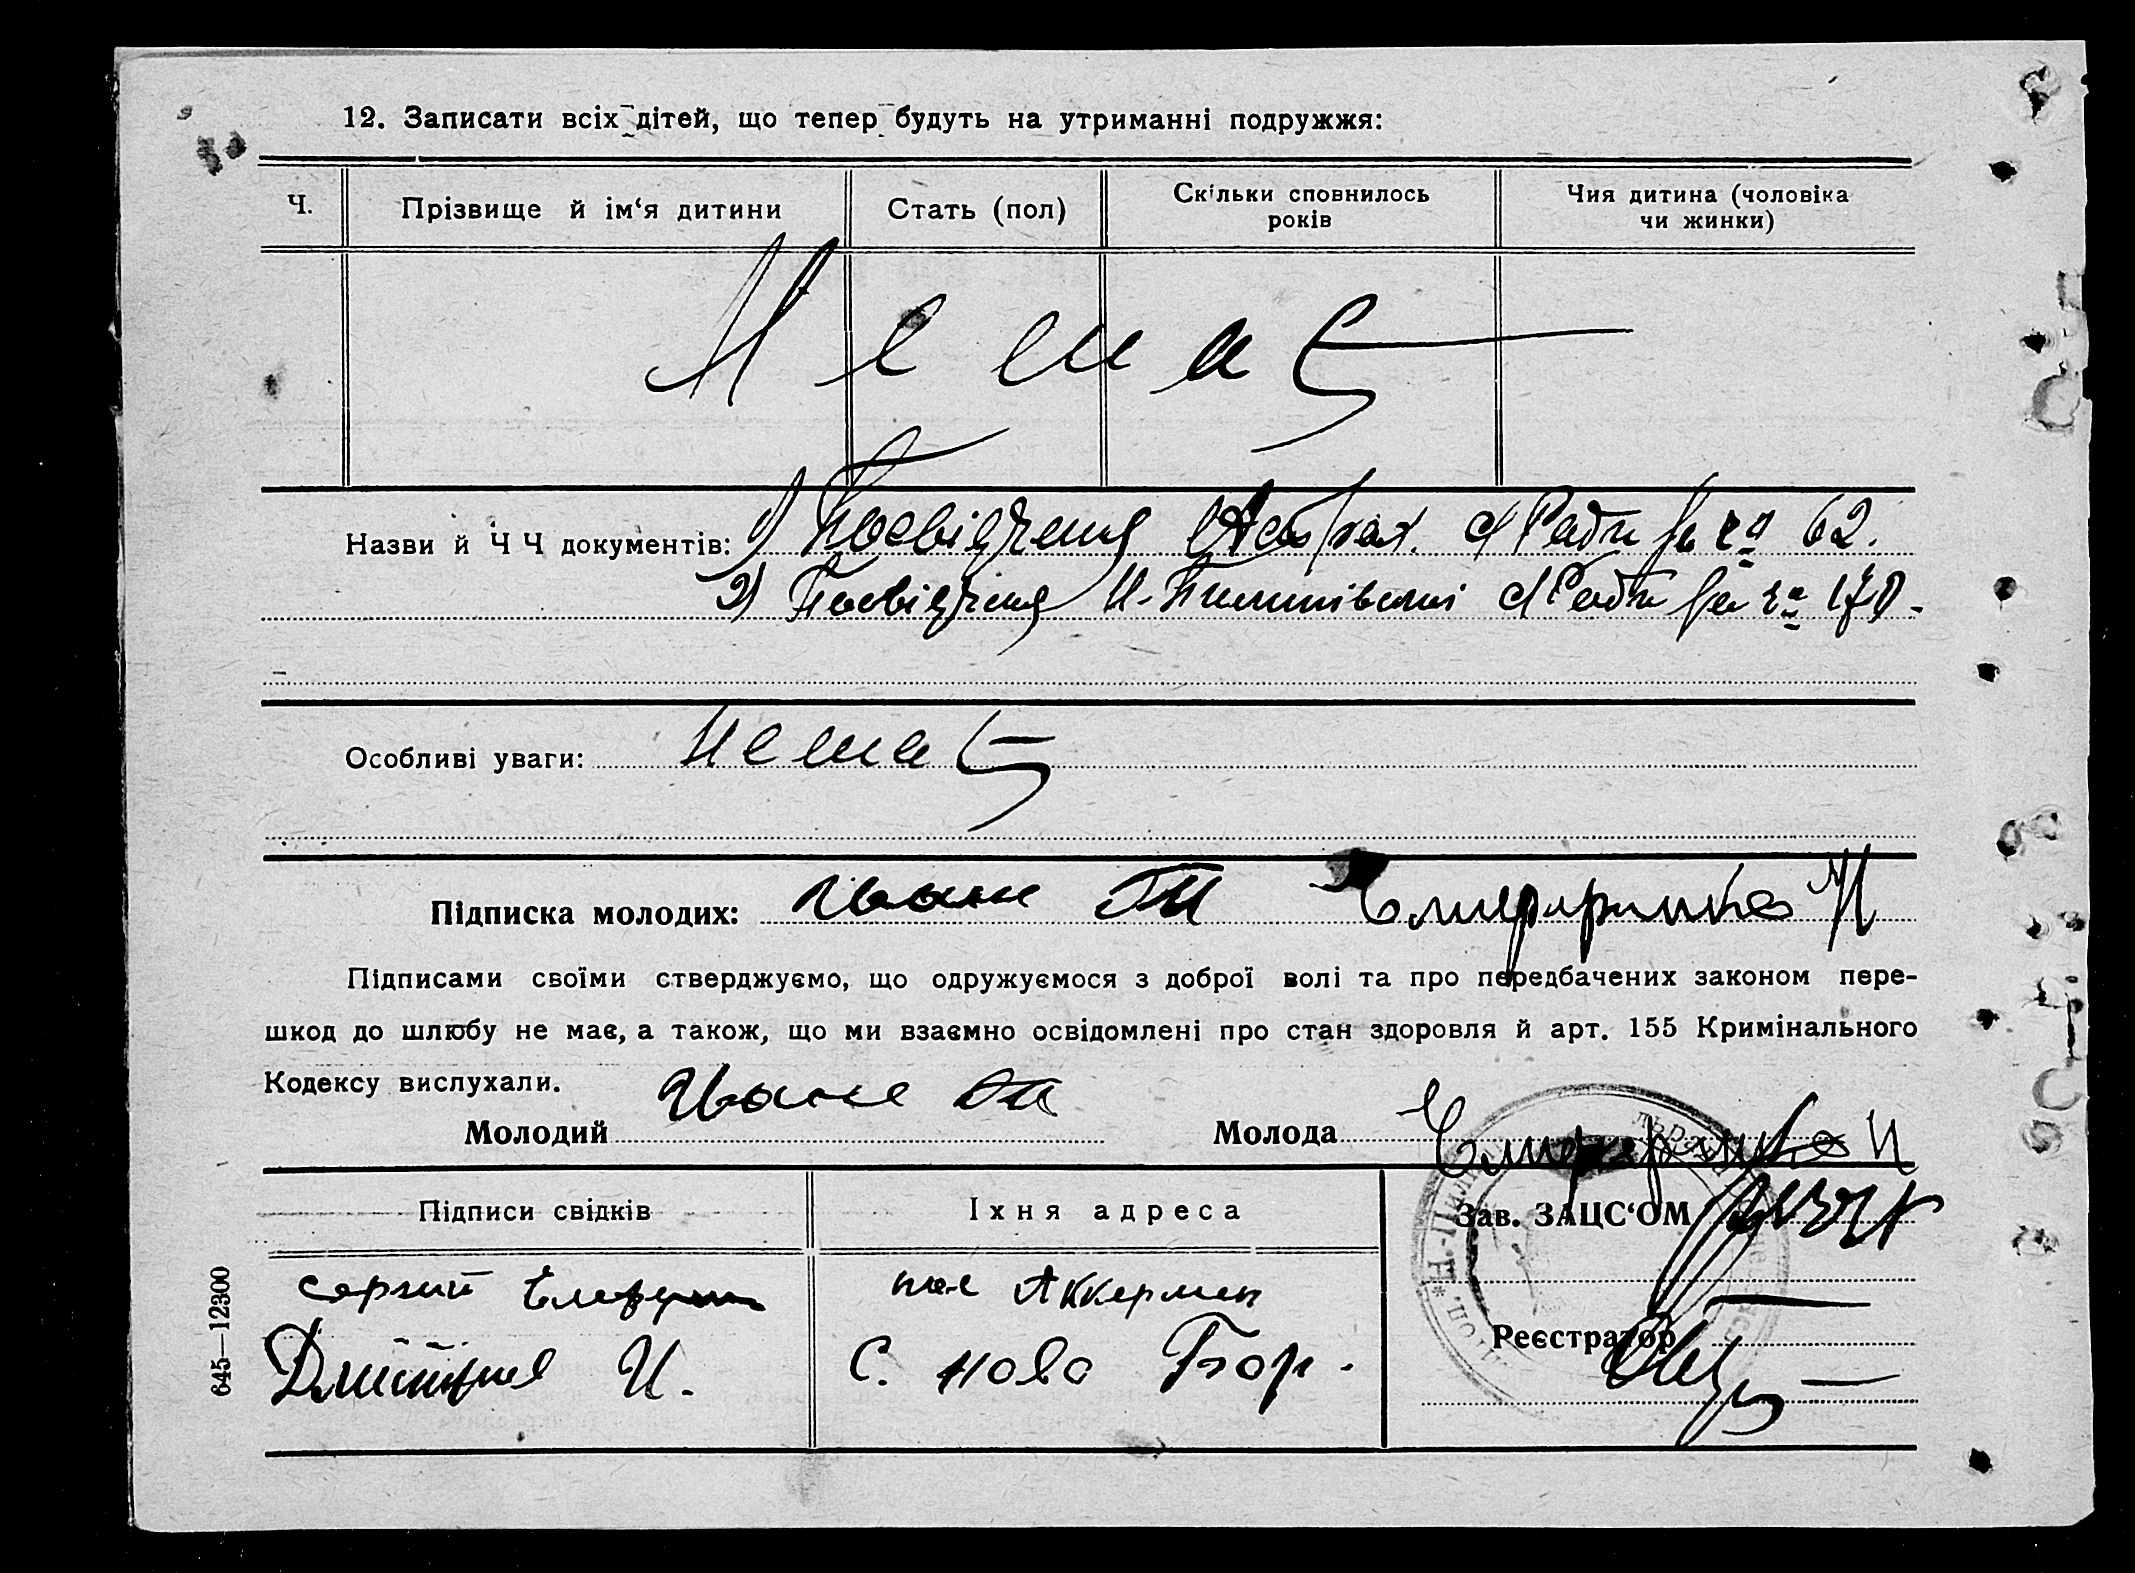 12. Записати всіх дітей, що тепер будуть на утриманні подружжя:
Ч.
Прізвище й ім‘я дитини
Стать (пол)
Скільки сповнилось
років
Чия дитина (чоловіка
чи жинки)
Немає
Назви й Ч Ч документів: 1) Посвідчення с/Ради за ч. 62.
2) Посвідчення с/Ради за ч.
Особливі уваги: Немає
Підписка молодих:
Підписами своїми стверджуємо, що одружуємося з доброї волі та про передбачених законом пере-
шкод до шлюбу не має, а також, що ми взаємно освідомлені про стан здоровля й арт. 155 Кримінального
Кодексу вислухали.
Молодий
Молода
Підписи свідків
Їхня адреса
Зав. ЗАЦС‘ОМ
сергий
пос Аккермен
Реєстратор
И.
С. Ново
645—12300